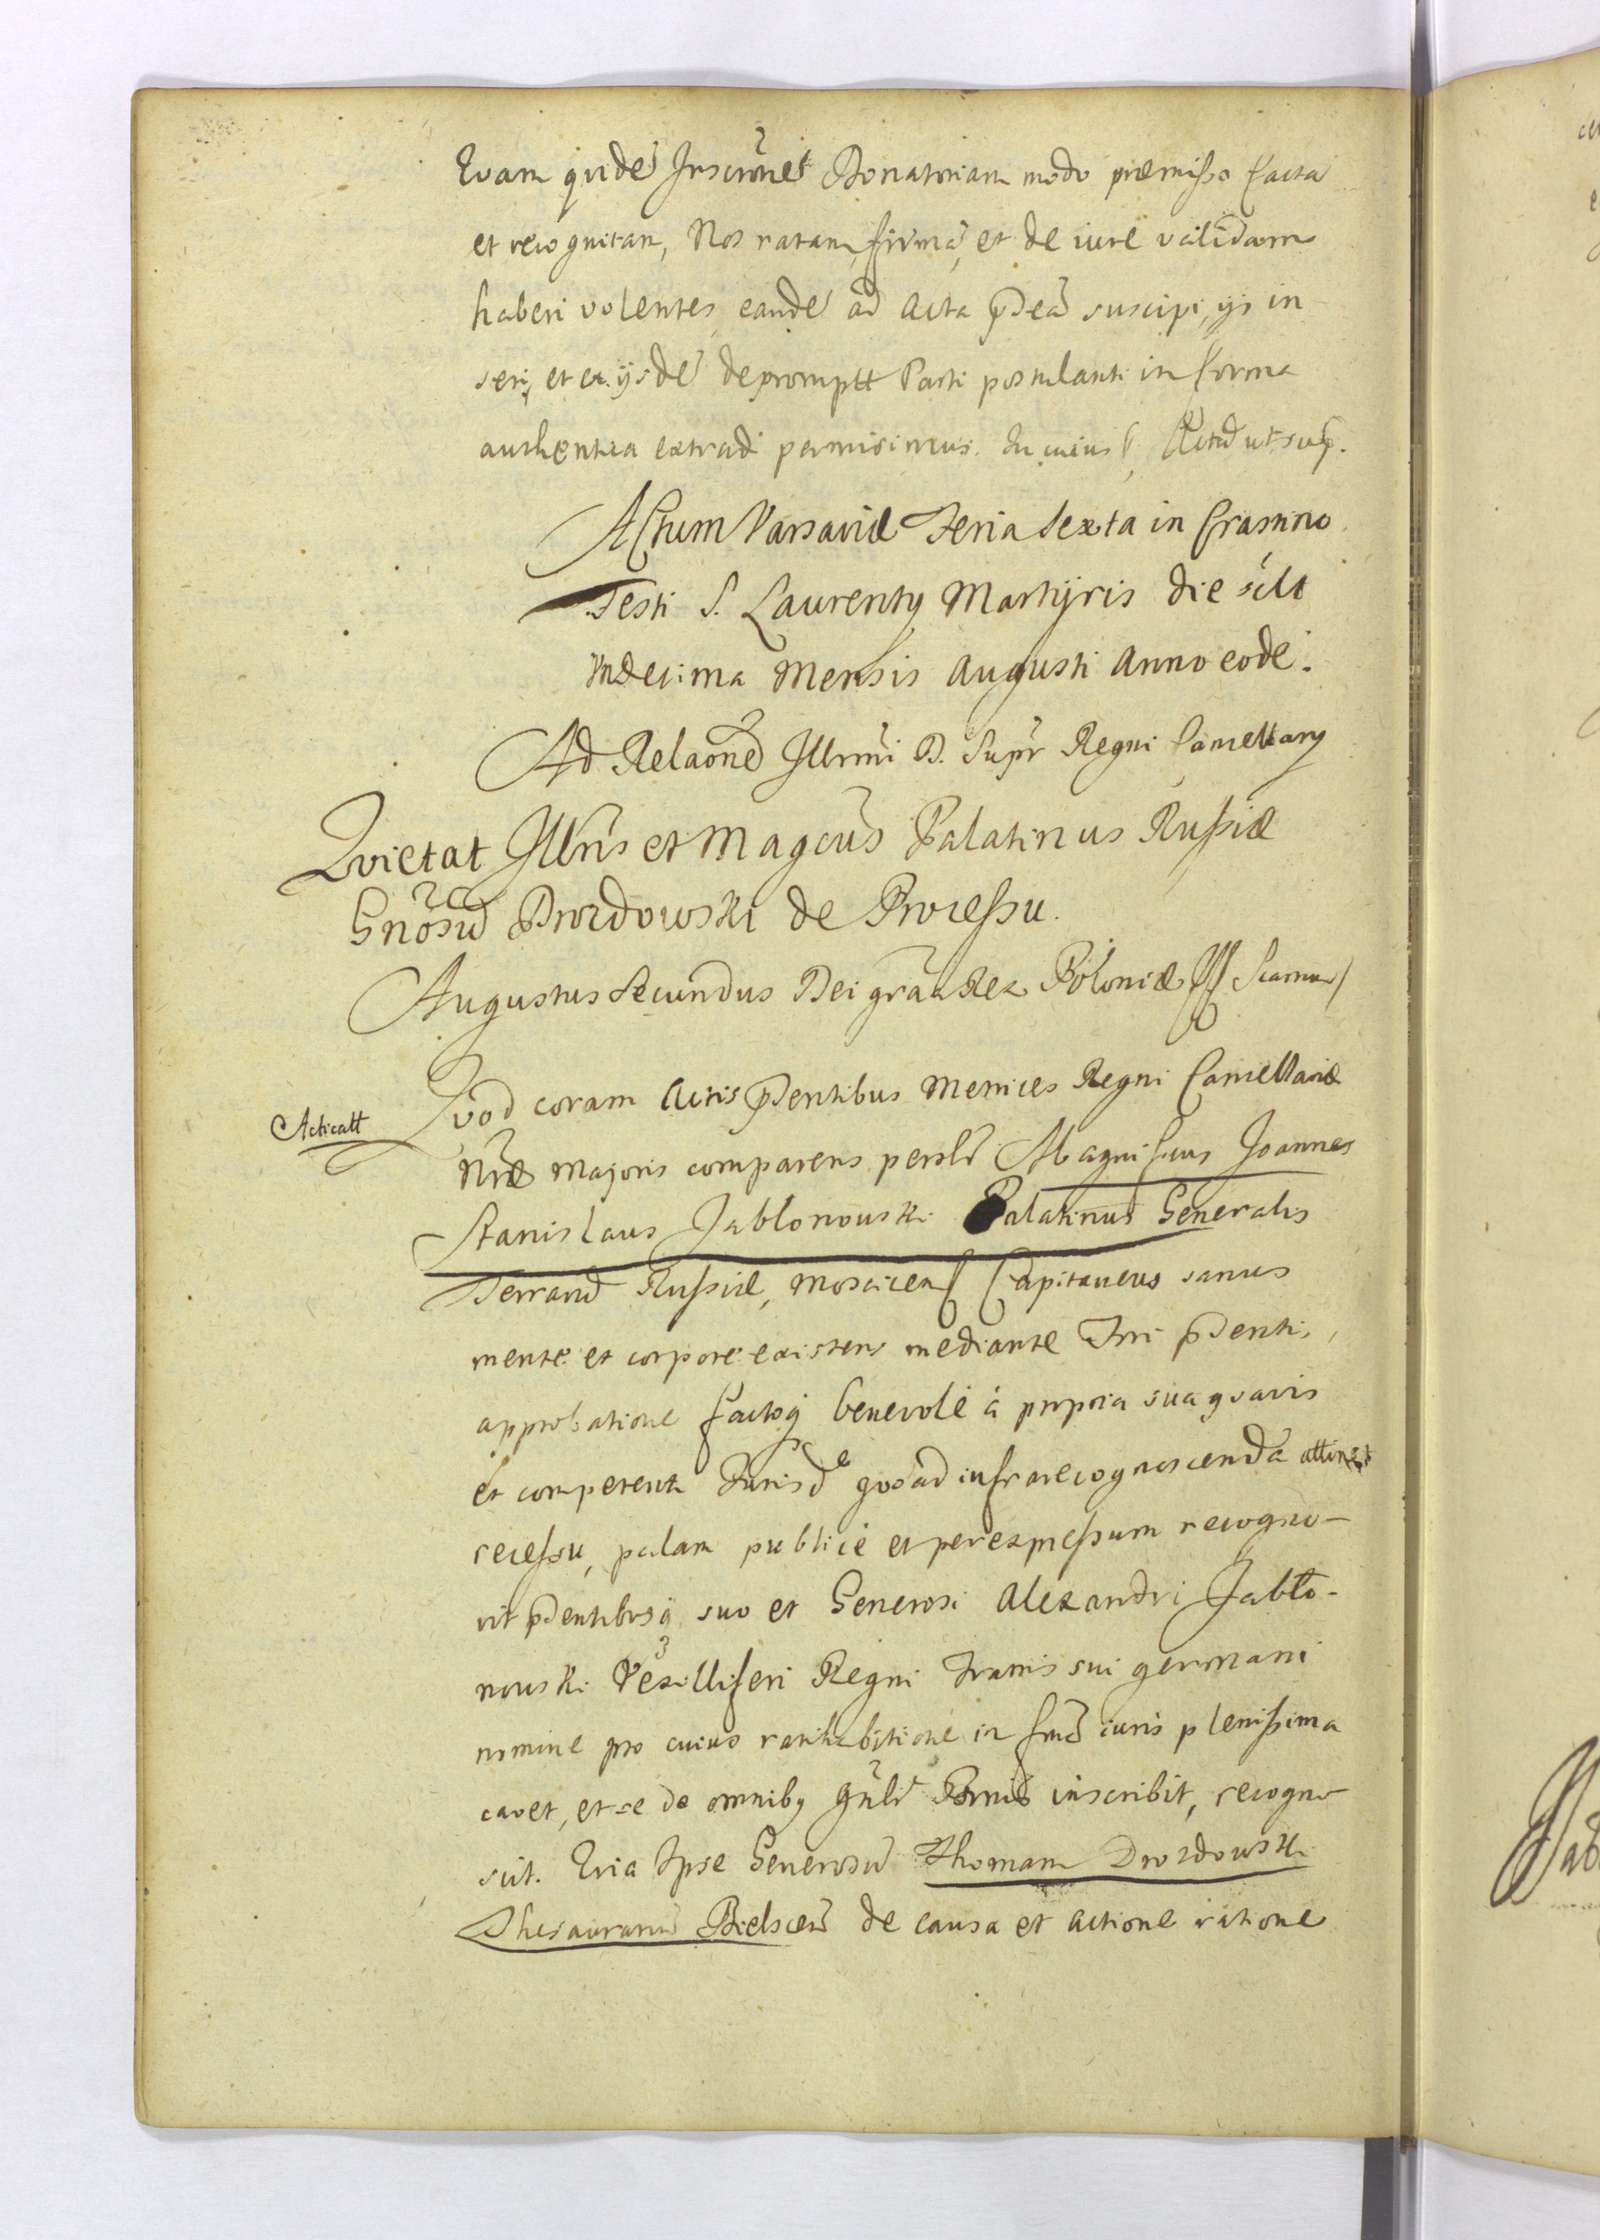 Qvam qvidē Inscrõnē Donatoriam modo præmisso factā
et recognitam, Nos ratam, firmā, et de iure validam
haberi volentes, eandē ad Acta prdcã suscipi, ijs in
seri, et ex ijsdē depromptt Parti postulanti in forma
authentica extradi permisimus. In cuius Actū ut sup.
Actum Varsaviæ Feria Sexta in Crastino
Festi S. Laurentij Martyris die scilt
Vndecima Mensis Augusti Anno eodē.
Ad Relaõnē Illrmi D. Supr Regni Cancellarij
Qvietat Illris et Magcus Palatinus Russiæ
Gnõsũ Drozdowski de Processu.
Augustus Secundus Dei grãa Rex Poloniæ
Qvod coram Actis prdentibus Metrices Regni Cancellariæ
Acticatt
Nræ Majoris comparens persolr Magnificus Joannes
Stanislaus Jabłonowski Palatinus Generalis
Terrarũ Russiæ, Moscicen Capitaneus sanus
mente et corpore existens mediante Irri prdentis,
approbatione factoq benevolè à propria sua qvavis
et competenti Jurisde qvo ad infra recognoscenda attinet
recessu, palam publicè et per expressum recogno-
vit prdentibusq suo et Generosi Alexandri Jabło-
nowski Vexilliferi Regni Fratris sui germani
nomine pro cuius ratihabitione in frmã iuris plenissima
cavet, et se de omnibq gnlr Bonis inscribit, recogno
scit. Qvia Ipse Generosũ Thomam Drozdowski
Thesaurariũ Bielscen de causa et actione ratione